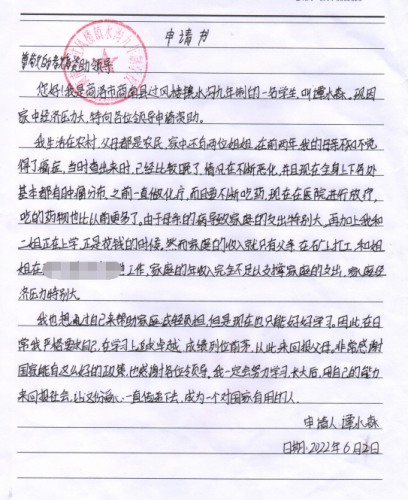 申请书
尊敬的各领导
您好!我是商洛市商南县过风楼镇水沟九年制的一名学生,叫谭水淼。现因
家中经济压力大,特向各位领导申请资助。
我生活在农村,父母都是农民,家中还有两位姐姐,在前两年我的母亲不知不觉
得了癌症,当时查出来时,已经比较晚了,情况在不断恶化,并且现在全身上下各处
基本都有肿瘤分布,之前一直做化疗,而且要不断吃药,现在在医院进行放疗,
吃的药物也比以前更多了。由于母亲的病导致家庭的支出特别大,再加上我和
二姐正在上学,正是花钱的时候,然而家庭的收入就只有父亲在石厂打工,和姐
姐在 工作,家庭的年收入完全不足以支撑家庭的支出,家庭经
济压力特别大。
我也想通过自己来帮助家庭减轻负担,但是现在也只能好好学习。因此,在日
常我严格要求自己,在学习上追求卓越,成绩列位前茅,从此来回报父母。非常感谢
国家能有这么好的政策,也感谢各位领导,我一定会努力学习,长大后,用自己的能力
来回报社会,让这份爱心一直传递下去,成为一个对国家有用的人。
申请人:谭水淼
日期:2022年6月2日